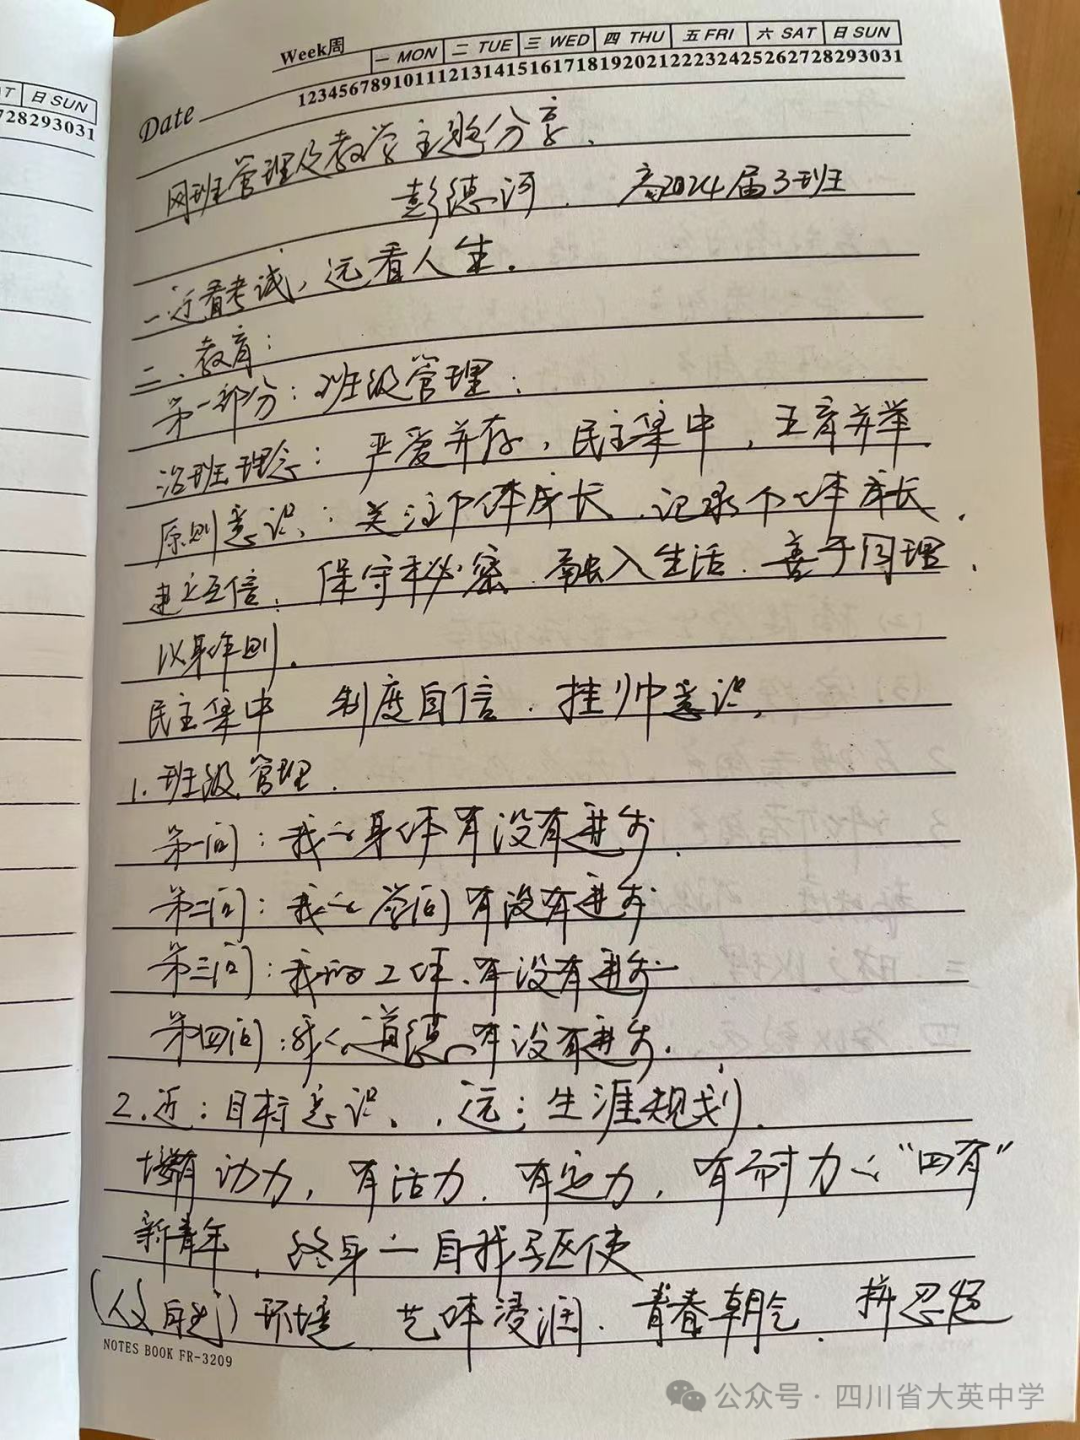 AT 日 SUN
728293031
Week周 一 MON 二 TUE 三 WED 四 THU 五 FRI 六 SAT 日 SUN
Date 12345678910111213141516171819202122232425262728293031
网班管理及教学主题分享.
彭德河. 高2024届3班
一.近看考试,远看人生.
二、教育:
第一部分:班级管理:
治班理念: 严爱并存,民主集中,五育并举.
原则意识:关注个体成长、记录个体成长.
建立互信、保守秘密.融入生活.善于同理.
以身作则.
民主集中 制度自信.挂帅意识.
1.班级管理.
第一问:我的身体有没有进步.
第二问:我的学问有没有进步
第三问:我的工作有没有进步
第四问:我的道德有没有进步.
2.近:目标意识、远:生涯规划.
有动力,有活力.有定力,有耐力 "四有"
新青年.终身 自我驱使
( )环境 艺体浸润.青春朝气.拼
NOTES BOOK FR-3209
公众号·四川省大英中学